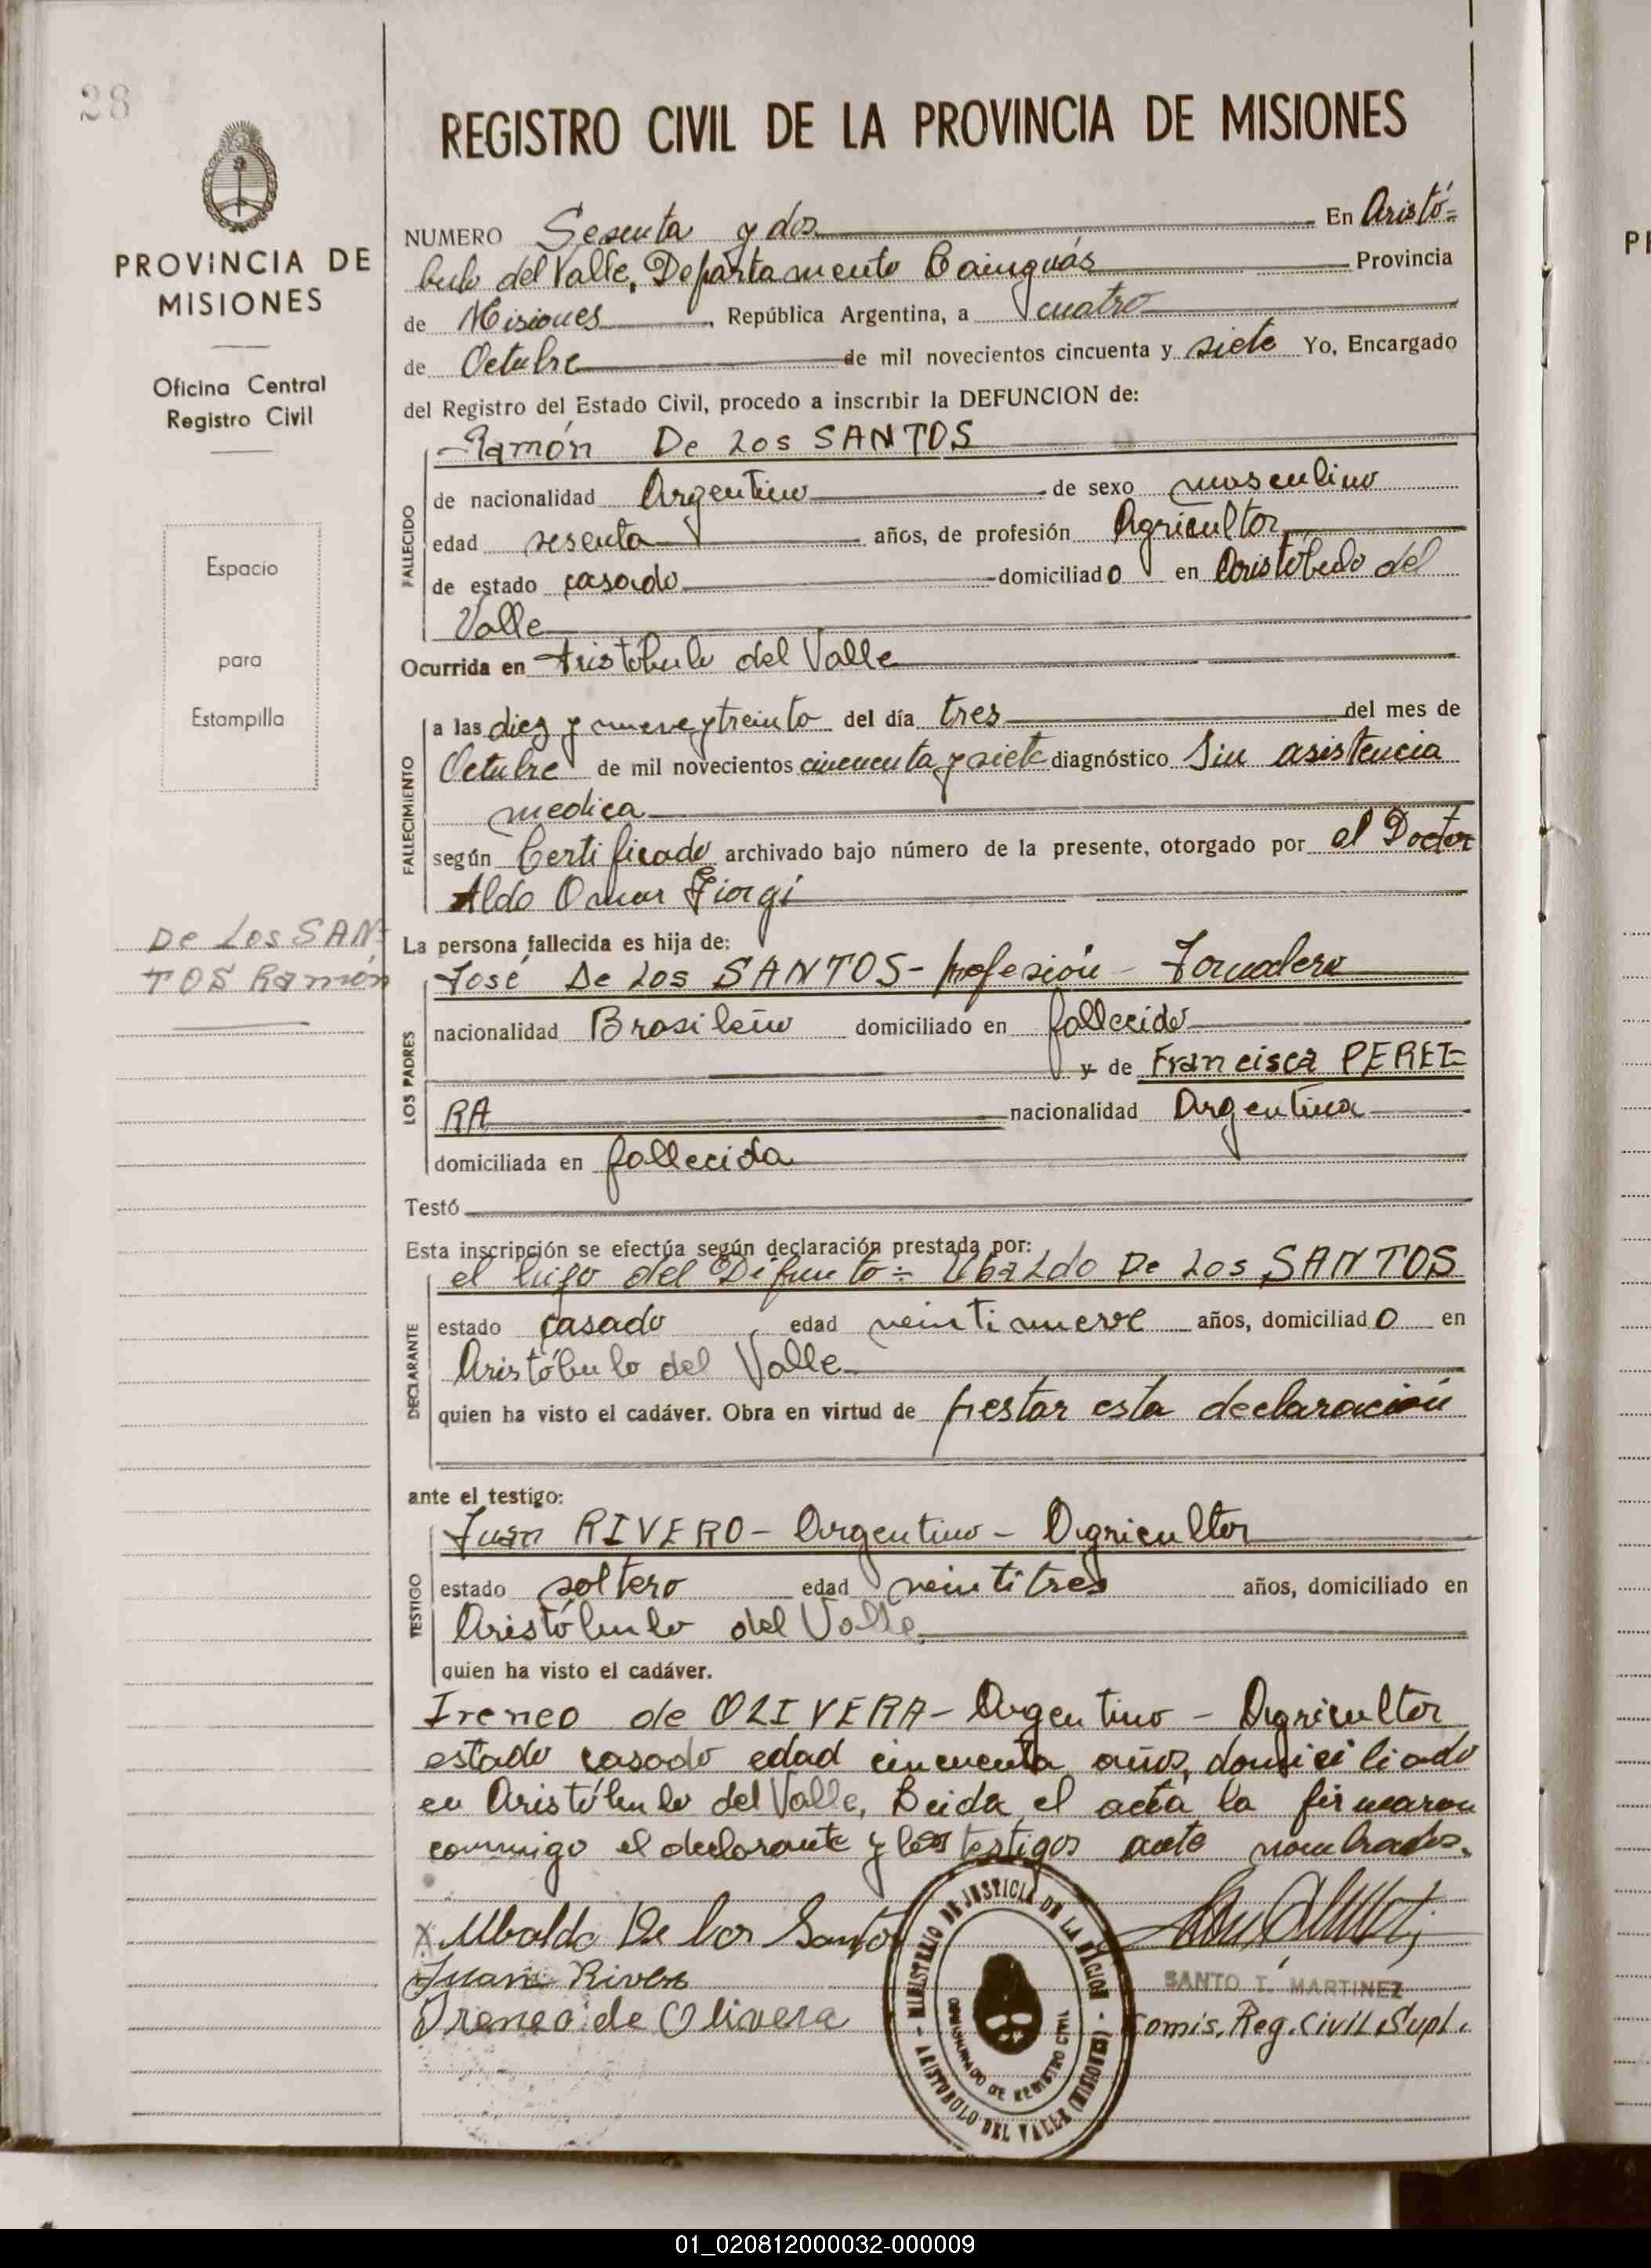 28
PROVINCIA DE
MISIONES
Oficina Central
Registro Civil
Espacio
para
Estampilla
De Los SAN-
TOS Ramón
REGISTRO CIVIL DE LA PROVINCIA DE MISIONES
NUMERO Sesenta y dos En Aristó=
bulo del Valle, Departamento Cainguás Provincia
de Misiones, República Argentina, a cuatro
de Octubre de mil novecientos cincuenta y siete Yo, Encargado
del Registro del Estado Civil, procedo a inscribir la DEFUNCION de:
FALLECIDO
Ramón De Los SANTOS
de nacionalidad Argentino de sexo masculino
edad sesenta años, de profesión Agricultor
de estado casado domiciliado en Aristobulo del
Valle
Ocurrida en Aristobulo del Valle
FALLECIMIENTO
a las diez y nueve y treinta del día tres del mes de
Octubre de mil novecientos cincuenta y siete diagnóstico Sin asistencia
medica
según Certificado archivado bajo número de la presente, otorgado por el Doctor
Aldo Omar Giorgi
La persona fallecida es hija de:
LOS PADRES
José De Los SANTOS - profesión - Jornalero
nacionalidad Brasileño domiciliado en fallecido
y de Francisca PEREI=
RA nacionalidad Argentina
domiciliada en fallecida
Testó
Esta inscripción se efectúa según declaración prestada por:
DECLARANTE
el hijo del Difunto:- Ubaldo De Los SANTOS
estado casado edad veintinueve años, domiciliado en
Aristóbulo del Valle
quien ha visto el cadáver. Obra en virtud de prestar esta declaración
ante el testigo:
TESTIGO
Juan RIVERO - Argentino - Agricultor
estado soltero edad veintitres años, domiciliado en
Aristóbulo del Valle
quien ha visto el cadáver.
Ireneo de OLIVERA - Argentino - Agricultor
estado casado edad cincuenta años, domiciliado
en Aristóbulo del Valle, Leida el acta la firmaron
conmigo el declarante y los testigos ante nombrados.
X Ubaldo De los Santos
Juan Rivero
Ireneo de Olivera
MINISTERIO DE JUSTICIA DE LA NACION - ARISTOBOLO DEL VALLE (MISIONES) -
DE REGISTRO CIVIL
SANTO T. MARTINEZ
Comis. Reg. Civil Supl.
01_020812000032-000009